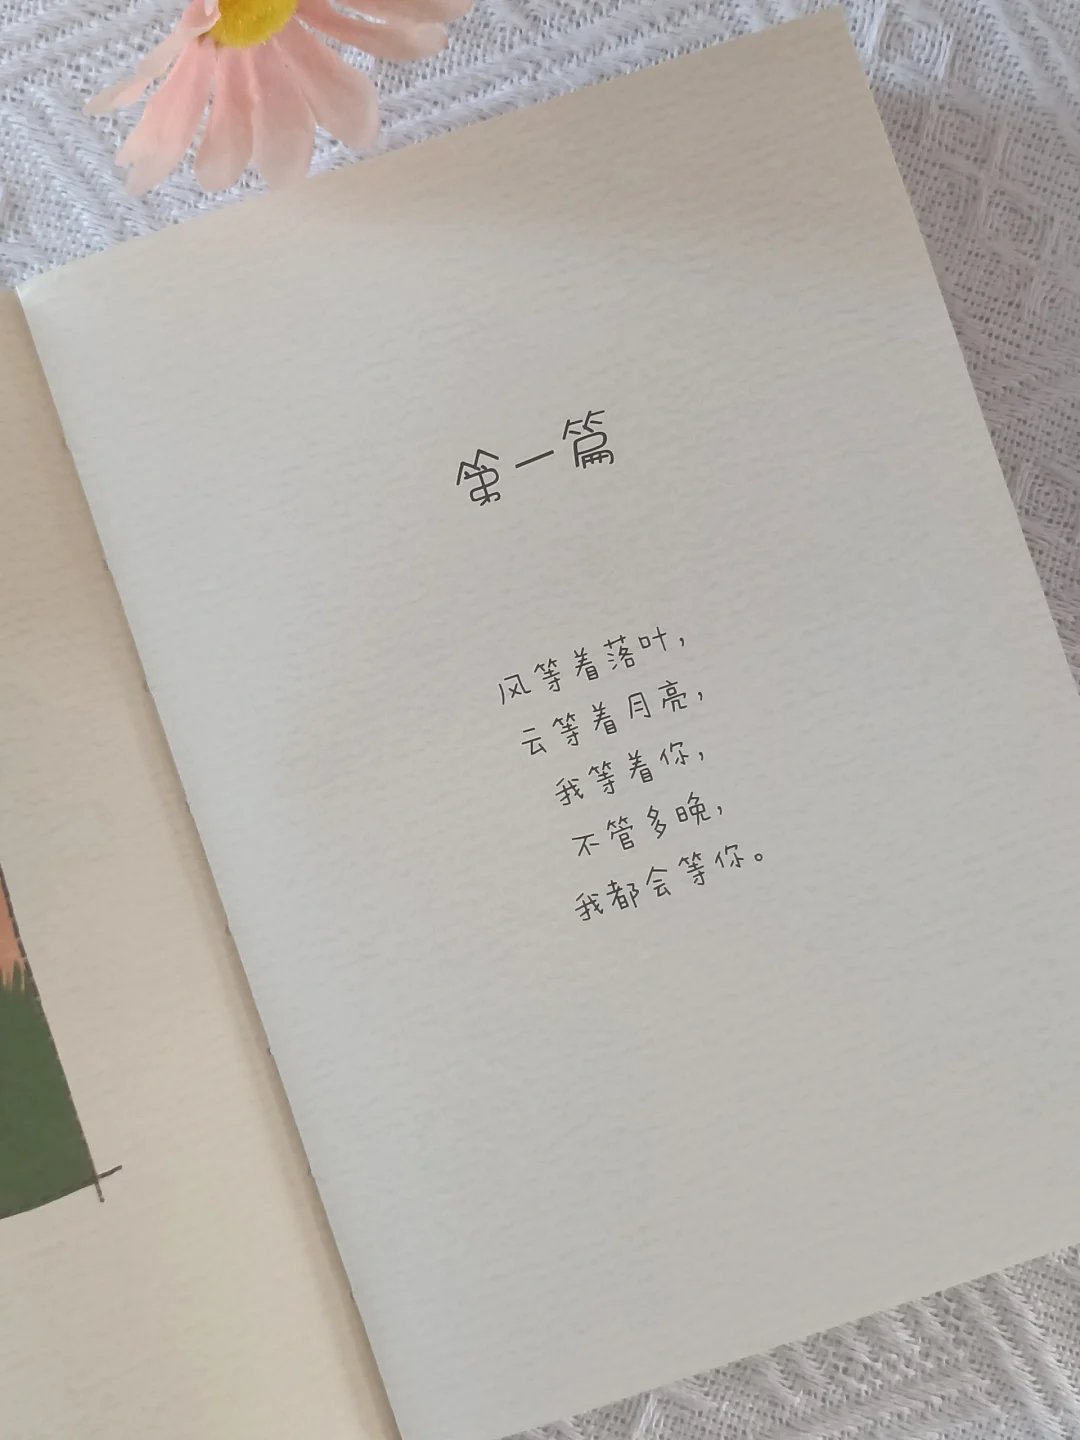 第一篇
风等着落叶，
云等着月亮，
我等着你，
不管多晚，
我都会等你。